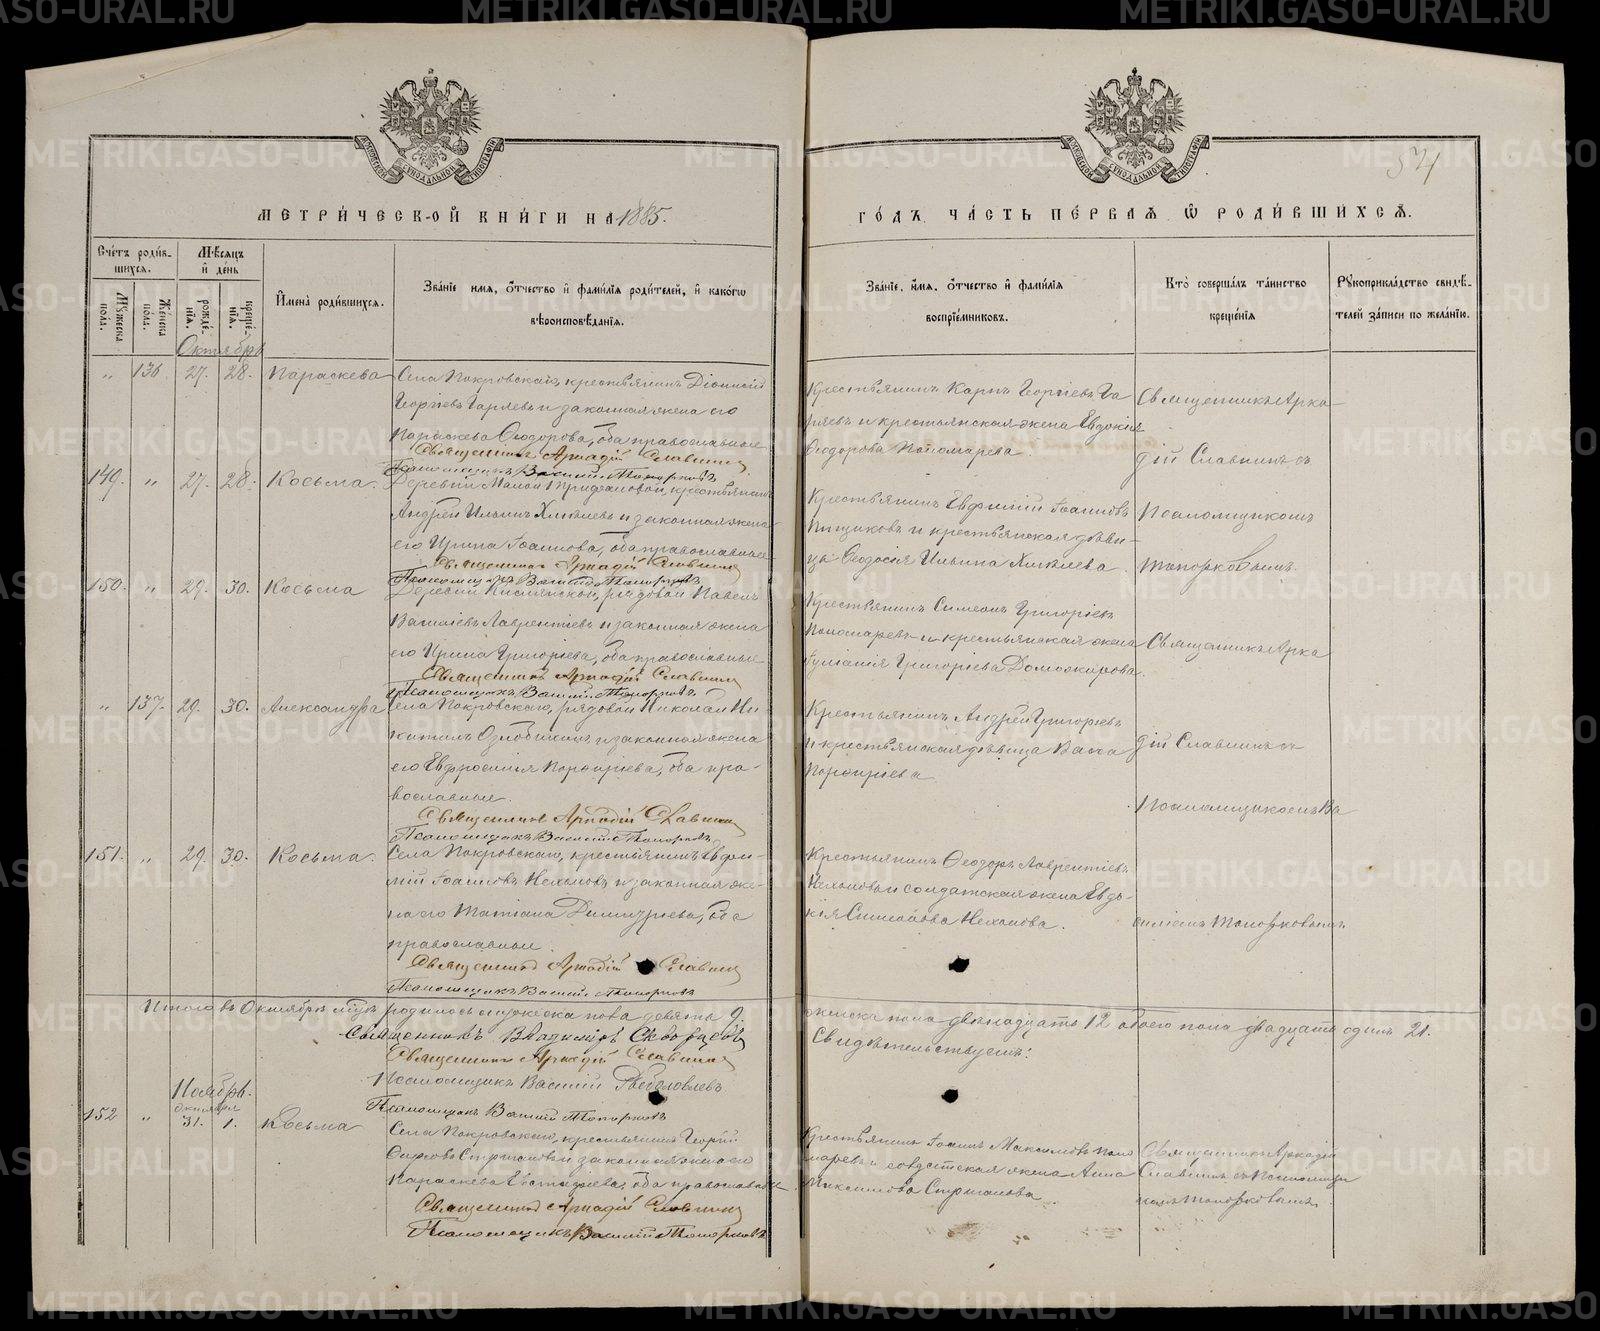 МЕТРИ́ЧЕСК-ОЙ КНИ́ГИ НА 1885.
ГО́ДЪ ЧА́СТЬ ПЕ́РВАЯ Ѡ РОДИ́ВШИХСЯ.
54
Сче́тъ роди́вшихся.
Му́жеска по́ла.
Же́нска по́ла.
Мѣ́сяцъ и де́нь
рожде́нїя.
креще́нїя.
Имена̀ роди́вшихся.
Зва́нїе имя, ѻ́тчество и фами́лїя роди́телей, и како́гѡ
вѣроисповѣ́данїя.
Зва́нїе, и́мя, ѻ́тчество и фами́лїя
воспрїе́мниковъ.
Кто̀ соверша́лъ та́инство
креще́нїя
Рꙋкоприкла́дство свидѣ́-
телей за́писи по жела́нїю.
Октябрь
" 136. 27. 28. Параскева
Села Покровскаго, крестьянинъ Діонисій
Георгіевъ Гаряевъ и законная жена его
Параскева Ѳеодорова, оба православные
Священникъ Аркадій Славнинъ
Псаломщикъ Василій Топорковъ
Крестьянинъ Карпъ Георгіевъ Га
ряевъ и крестьянская жена Евдокія
Ѳеодорова Пономарева.
Священникъ Арка-
дій Славнинъ съ
149. " 27. 28. Косьма.
Деревни Малой Трифановой, крестьянинъ
Андрей Ильинъ Хмѣлевъ и законная жена
его Ирина Іоаннова, оба православные
Священникъ Аркадій Славнинъ
Псаломщикъ Василій Топорковъ
Крестьянинъ Евфимій Іоанновъ
и крестьянская дѣви-
ца Ѳеодосія Ильина Хмѣлева.
Псаломщикомъ
Топорковымъ
150. " 29. 30. Косьма
Деревни рядовой Павелъ
Васильевъ Лаврентьевъ и законная жена
его Ирина Григорьева, оба православные
Священникъ Аркадій Славнинъ
Псаломщикъ Василій Топорковъ
Крестьянинъ Симеонъ Григоріевъ
Пономаревъ и крестьянская жена
Іуліанія Григоріева Доможирова.
Священникъ Арка
" 137. 29. 30. Александра
Села Покровскаго, рядовой Николай Ни-
китинъ и законная жена
его Евфросинія Порфиріева, оба пра-
вославные.
Священникъ Аркадій Славнинъ
Псаломщикъ Василій Топорковъ
Крестьянинъ Андрей Григоріевъ
и крестьянская дѣвица Васса
Порфиріева
дій Славнинъ съ
Псаломщикомъ Ва
151. " 29. 30. Косьма.
Села Покровскаго, крестьянинъ Евфи-
мій Іоанновъ Нехоновъ и законная же-
на его Татіана Димитріева, оба
православные.
Священникъ Аркадій Славнинъ
Псаломщикъ Василій Топорковъ
Крестьянинъ Ѳеодоръ Лаврентіевъ
Нехоновъ и солдатская жена Евдо-
кія Симеонова Нехонова.
силіемъ Топорковымъ
Итого въ Октябрѣ м-цѣ родилось мужеска пола девять 9.
женска пола двѣнадцать 12 обоего пола двадцать одинъ 21.
Священникъ Владиміръ Скворцовъ
Свидѣтельствуемъ:
Священникъ Аркадій Славнинъ
Псаломщикъ Василій
Псаломщикъ Василій Топорковъ
Ноябрь.
октября
152 " 31. 1. Косьма
Села Покровскаго, крестьянинъ Георгій
и законная жена его
Параскева Евстафіева, оба православные
Священникъ Аркадій Славнинъ
Псаломщикъ Василій Топорковъ
Крестьянинъ Іоаннъ Максимовъ Поно
маревъ и солдатская жена Анна
Максимова
Священникъ Аркадій
Славнинъ съ Псаломщи
комъ Топорковымъ.